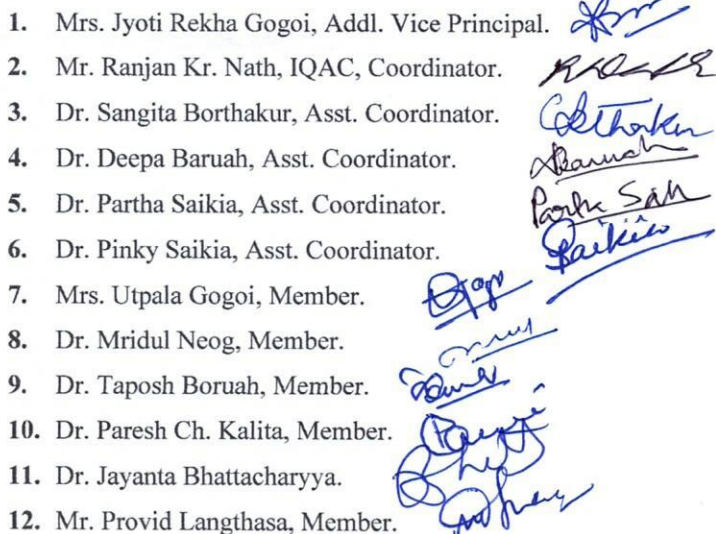 1. Mrs. Jyoti Rekha Gogoi, Addl. Vice Principal.
2. Mr. Ranjan Kr. Nath, IQAC, Coordinator.
3. Dr. Sangita Borthakur, Asst. Coordinator.
4. Dr. Deepa Baruah, Asst. Coordinator.
5. Dr. Partha Saikia, Asst. Coordinator.
6. Dr. Pinky Saikia, Asst. Coordinator.
7. Mrs. Utpala Gogoi, Member.
8. Dr. Mridul Neog, Member.
9. Dr. Taposh Boruah, Member.
10. Dr. Paresh Ch. Kalita, Member.
11. Dr. Jayanta Bhattacharyya.
12. Mr. Provid Langthasa, Member.